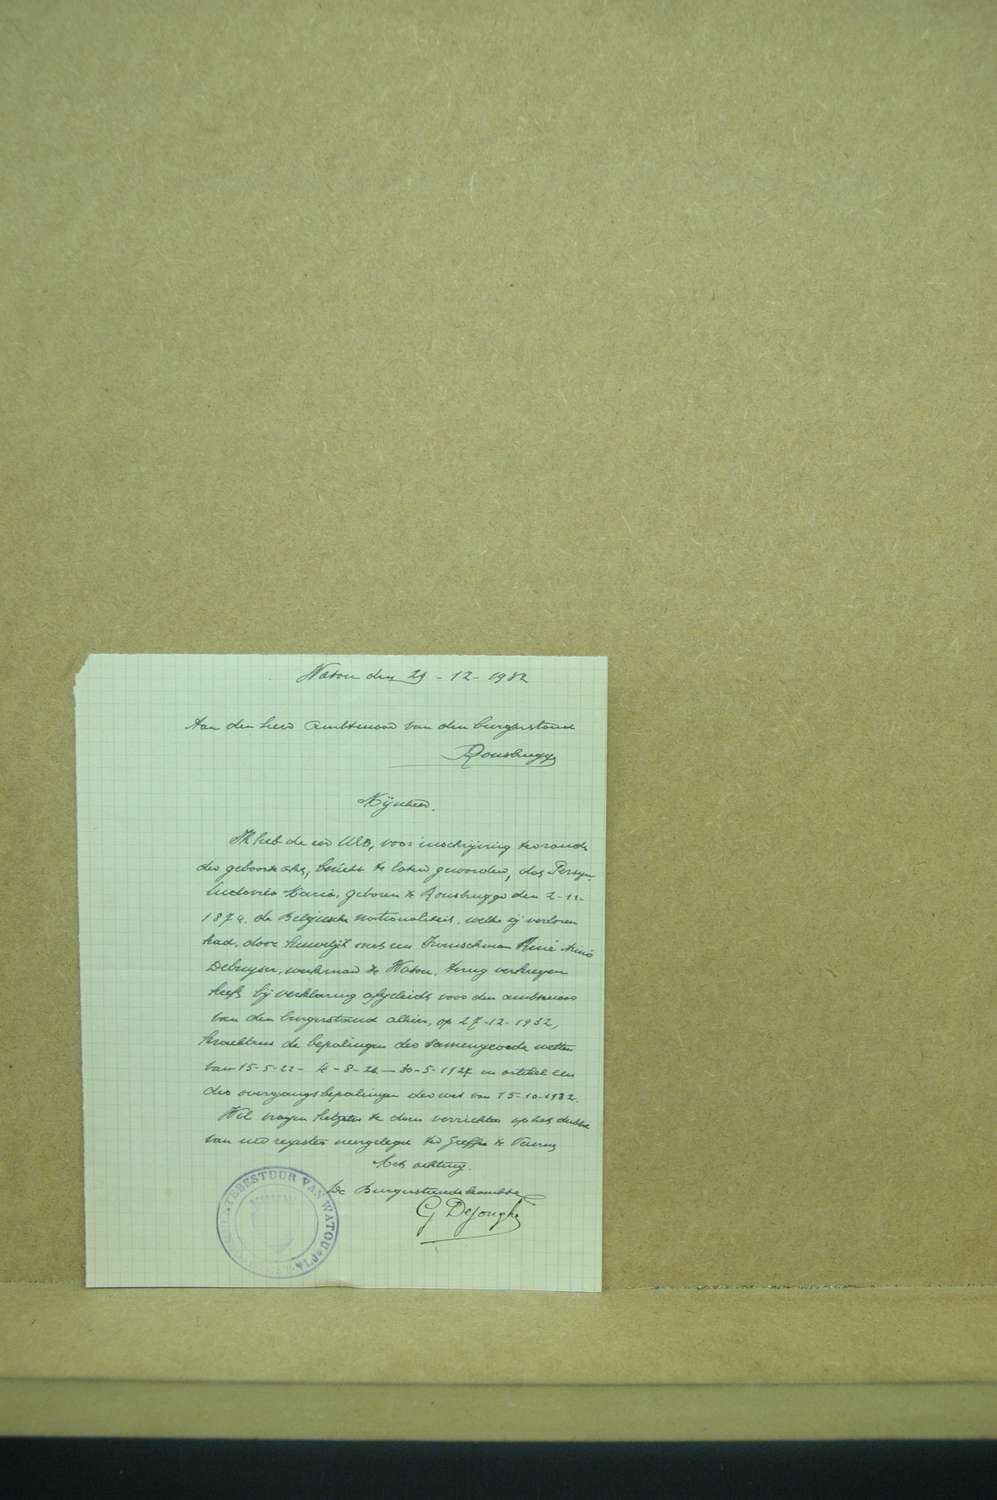 Watou den 29 - 12 - 1932
Aan den heer Ambtenaar van den burgerstand
Rousbrugge
Mijnheer.
Ik heb de eer UEd, voor inschrijving ten rande
der geboorte akte, bericht te laten geworden, dat Persyn
Ludovica Maria, geboren te Rousbrugge den 2-12-
1874, de Belgische nationaliteit, welke zij verloren
had, door huwelijk met een Franschman René
Debuyser, werkman te Watou, terug verkregen
heeft bij verklaring afgeleid voor den ambtenaar
van den burgerstand alhier, op 27-12-1932,
krachtens de bepalingen der samengevoegde wetten
van 15-5-22 - 4-8-26 - 30-5-1927 en artikel een
der overgangsbepalingen der wet van 15-10-1932.
Wil vragen hetzelfde te doen verrichten op het dubbel
van uw register neergelegd ter Greffie te Veurne
Met achting.
De Burgerstandsbeambte
G Dejonghe
GEMEENTEBESTUUR VAN WATOU